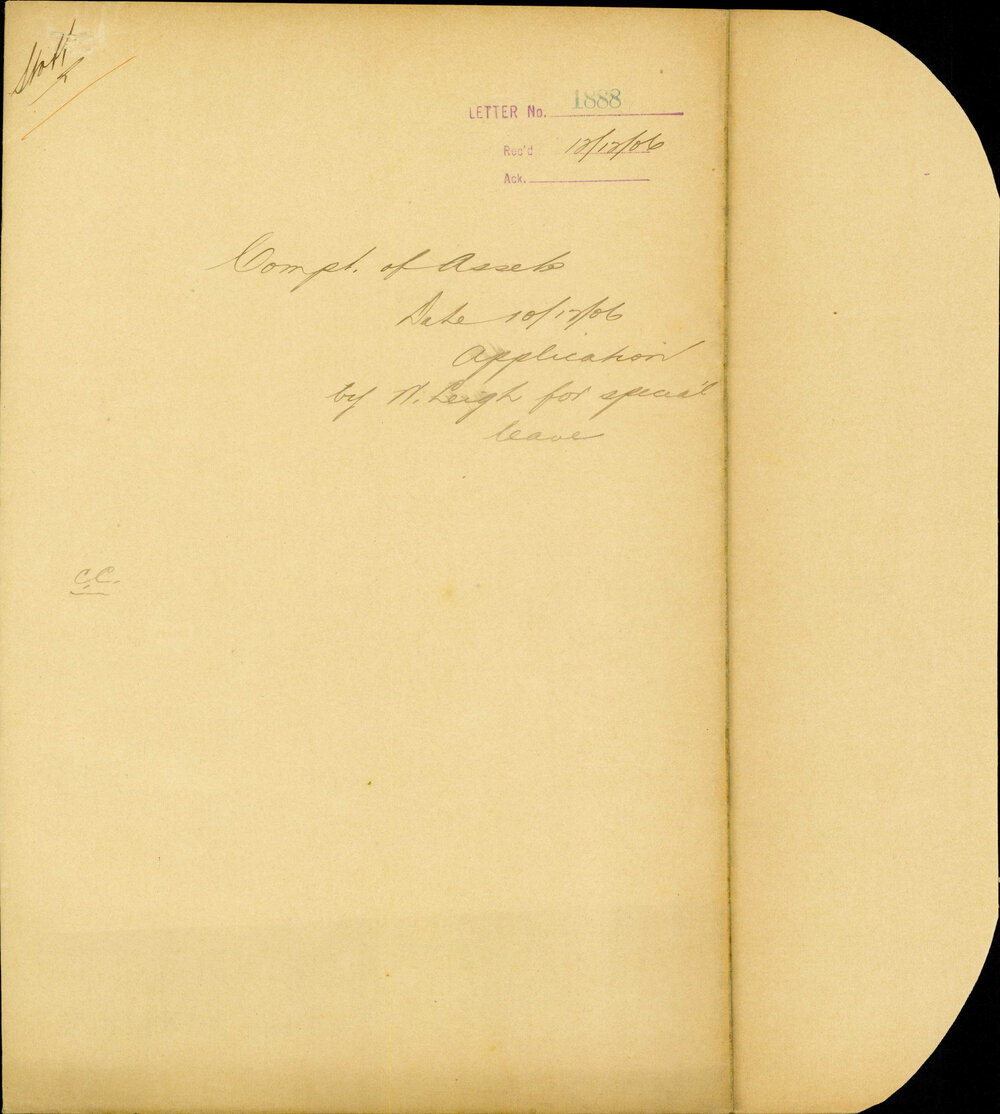 LETTER No. 1888
Rec'd 12/12/06
Ack.
Compt. of Assets
Date 10/12/06
Application
by N. Leigh for special
leave
C.C.